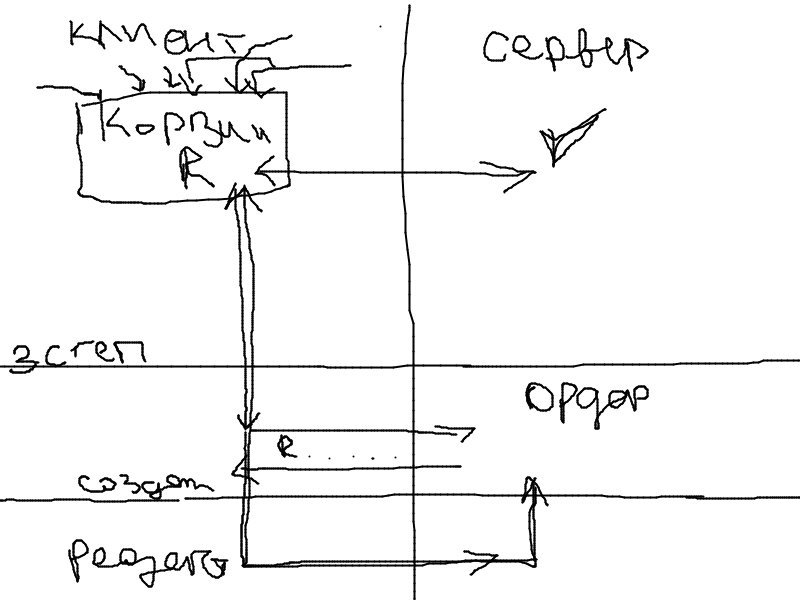 клиент
сервер
корзин
R
3 степ
ордер
R . . . . .
создат